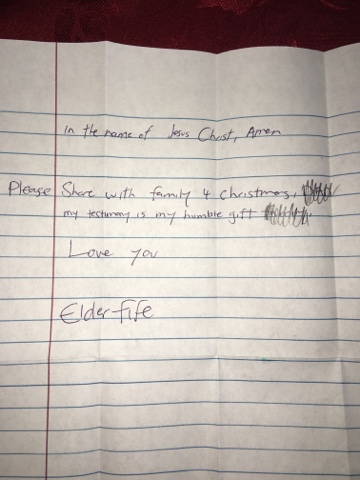 in the name of Jesus Christ, Amen
Please Share with family 4 Christmas,
my testimony is my humble gift
Love you
Elder Fife